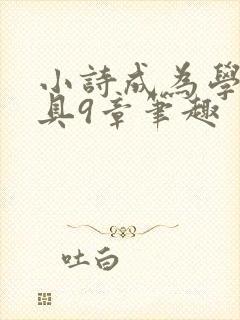 小詩成為學
具9章筆趣
吐白